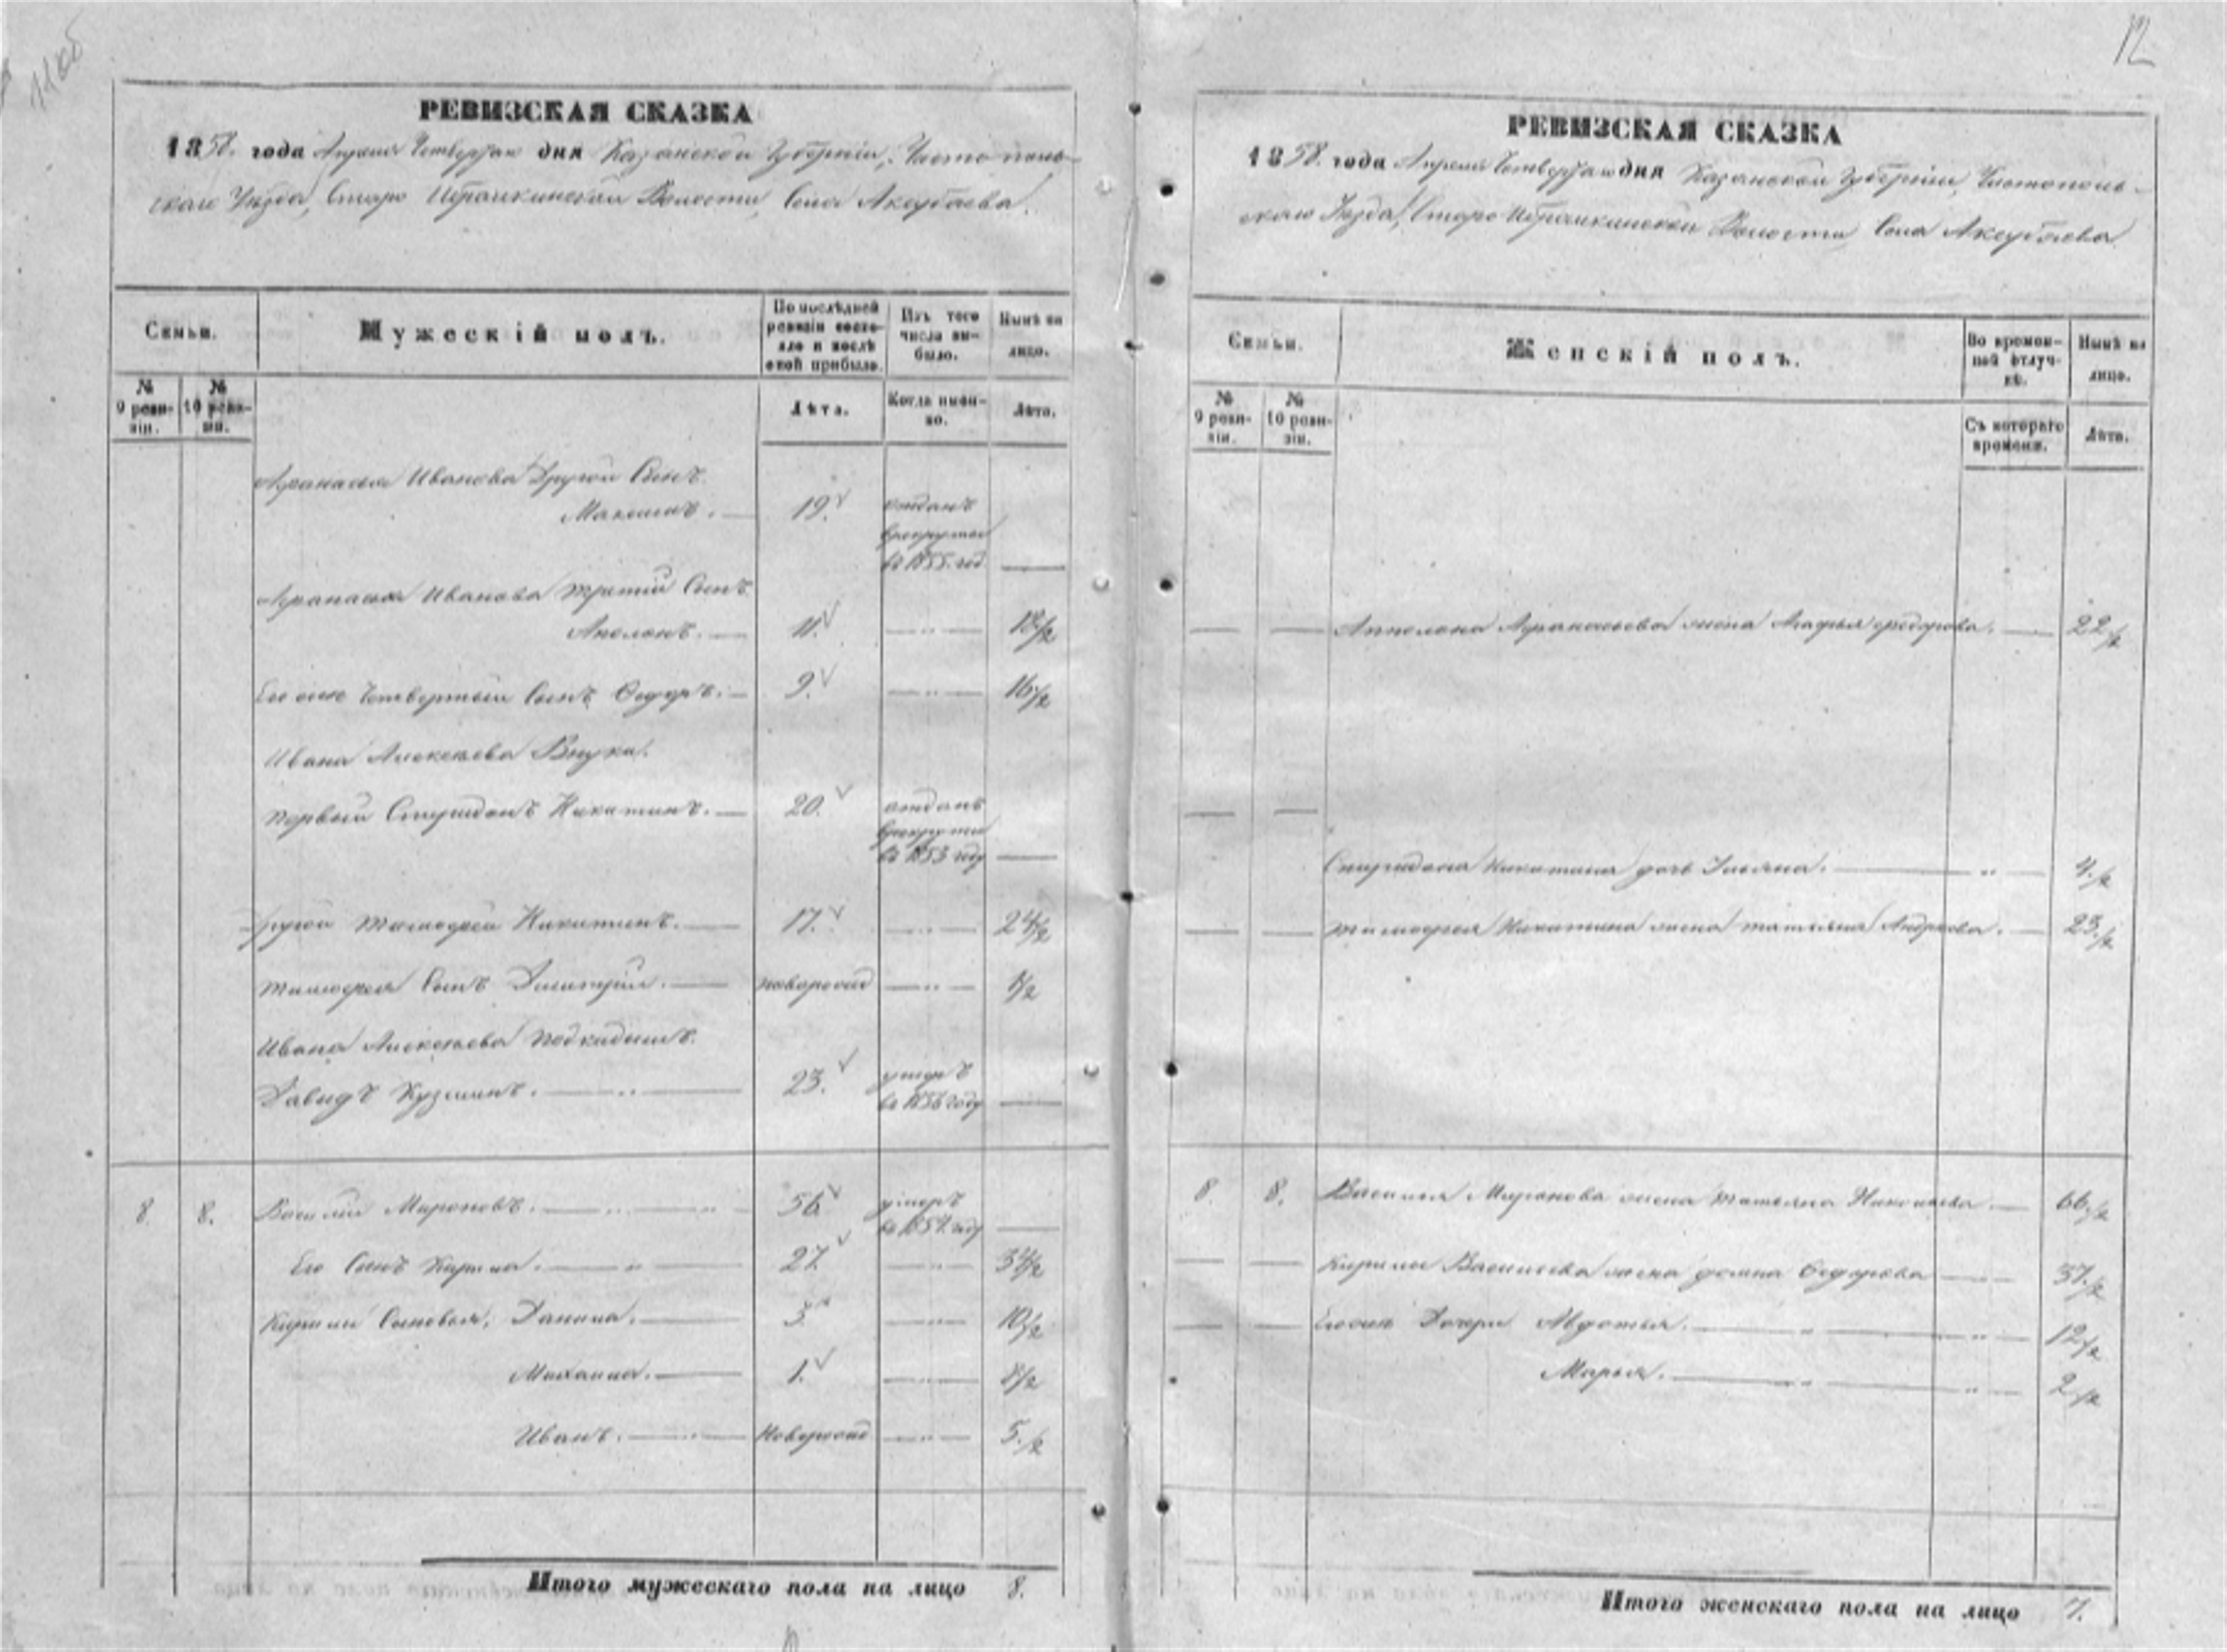 11 об
РЕВИЗСКАЯ СКАЗКА
1858. года Апреля Четвертаго дня Казанской Губерніи, Чистополь-
скаго Уѣзда, Старо Ибрайкинской Волости, Села Аксубаева.
Семьи.
Мужескій полъ.
По послѣдней ревизіи состо-яло и послѣ оной прибыло.
Изъ того числа вы-было.
Нынѣ на лицо.
№ 9 реви-зіи.
№ 10 реви-зіи.
Лѣта.
Когда имен-но.
Лѣта.
Афанасья Иванова Другой Сынъ
Максимъ. 19. отданъ
врекруты
въ 1855. год
Афанасья Иванова третій Сынъ
Аполонъ. 11. 18 1/2
Его же Четвертый Сынъ Федоръ. 9. 16 1/2
Ивана Алексеева Внуки.
первый Спиридонъ Никитинъ. 20. отданъ
врекруты
въ 1853 году
другой тимофей Никитинъ. 17. 24 1/2
тимофея Сынъ Димитрій. новорожд 1/2
Ивана Алексеева подкидышъ
Давидъ Кузминъ. 23. умеръ
въ 1856 году
8 8. Василий Мироновъ. 56 умеръ
въ 1857. году
Его Сынъ Кирила. 27. 34 1/2
Кирилы Сыновья, Данила. 3 10 1/2
Михаила. 1. 8 1/2
Иванъ. Новорожд 5. 1/2
Итого мужескаго пола на лицо 8.
12
РЕВИЗСКАЯ СКАЗКА
1858. года Апреля Четвертаго дня Казанской Губерніи, Чистополь-
скаго Уѣзда, Старо Ибрайкинской Волости, Села Аксубаева
Семьи.
Женскій полъ.
Во времен-ной отлуч-кѣ.
Нынѣ на лицо.
№ 9 реви-зіи.
№ 10 реви-зіи.
Съ котораго времени.
Лѣта.
Апполона Афанасьева жена Агафья федорова. 22 1/2
Спиридона Никитина дочь Ульяна. 4. 1/2
тимофея Никитина жена татьяна Андреева. 23. 1/2
8. 8. Василья Миронова жена татьяна Николаева 66. 1/2
Кирилы Васильева жена домна Федорова 37. 1/2
Егоже Дочери Авдотья. 12 1/2
Марья. 2 1/2
Итого женскаго пола на лицо 7.